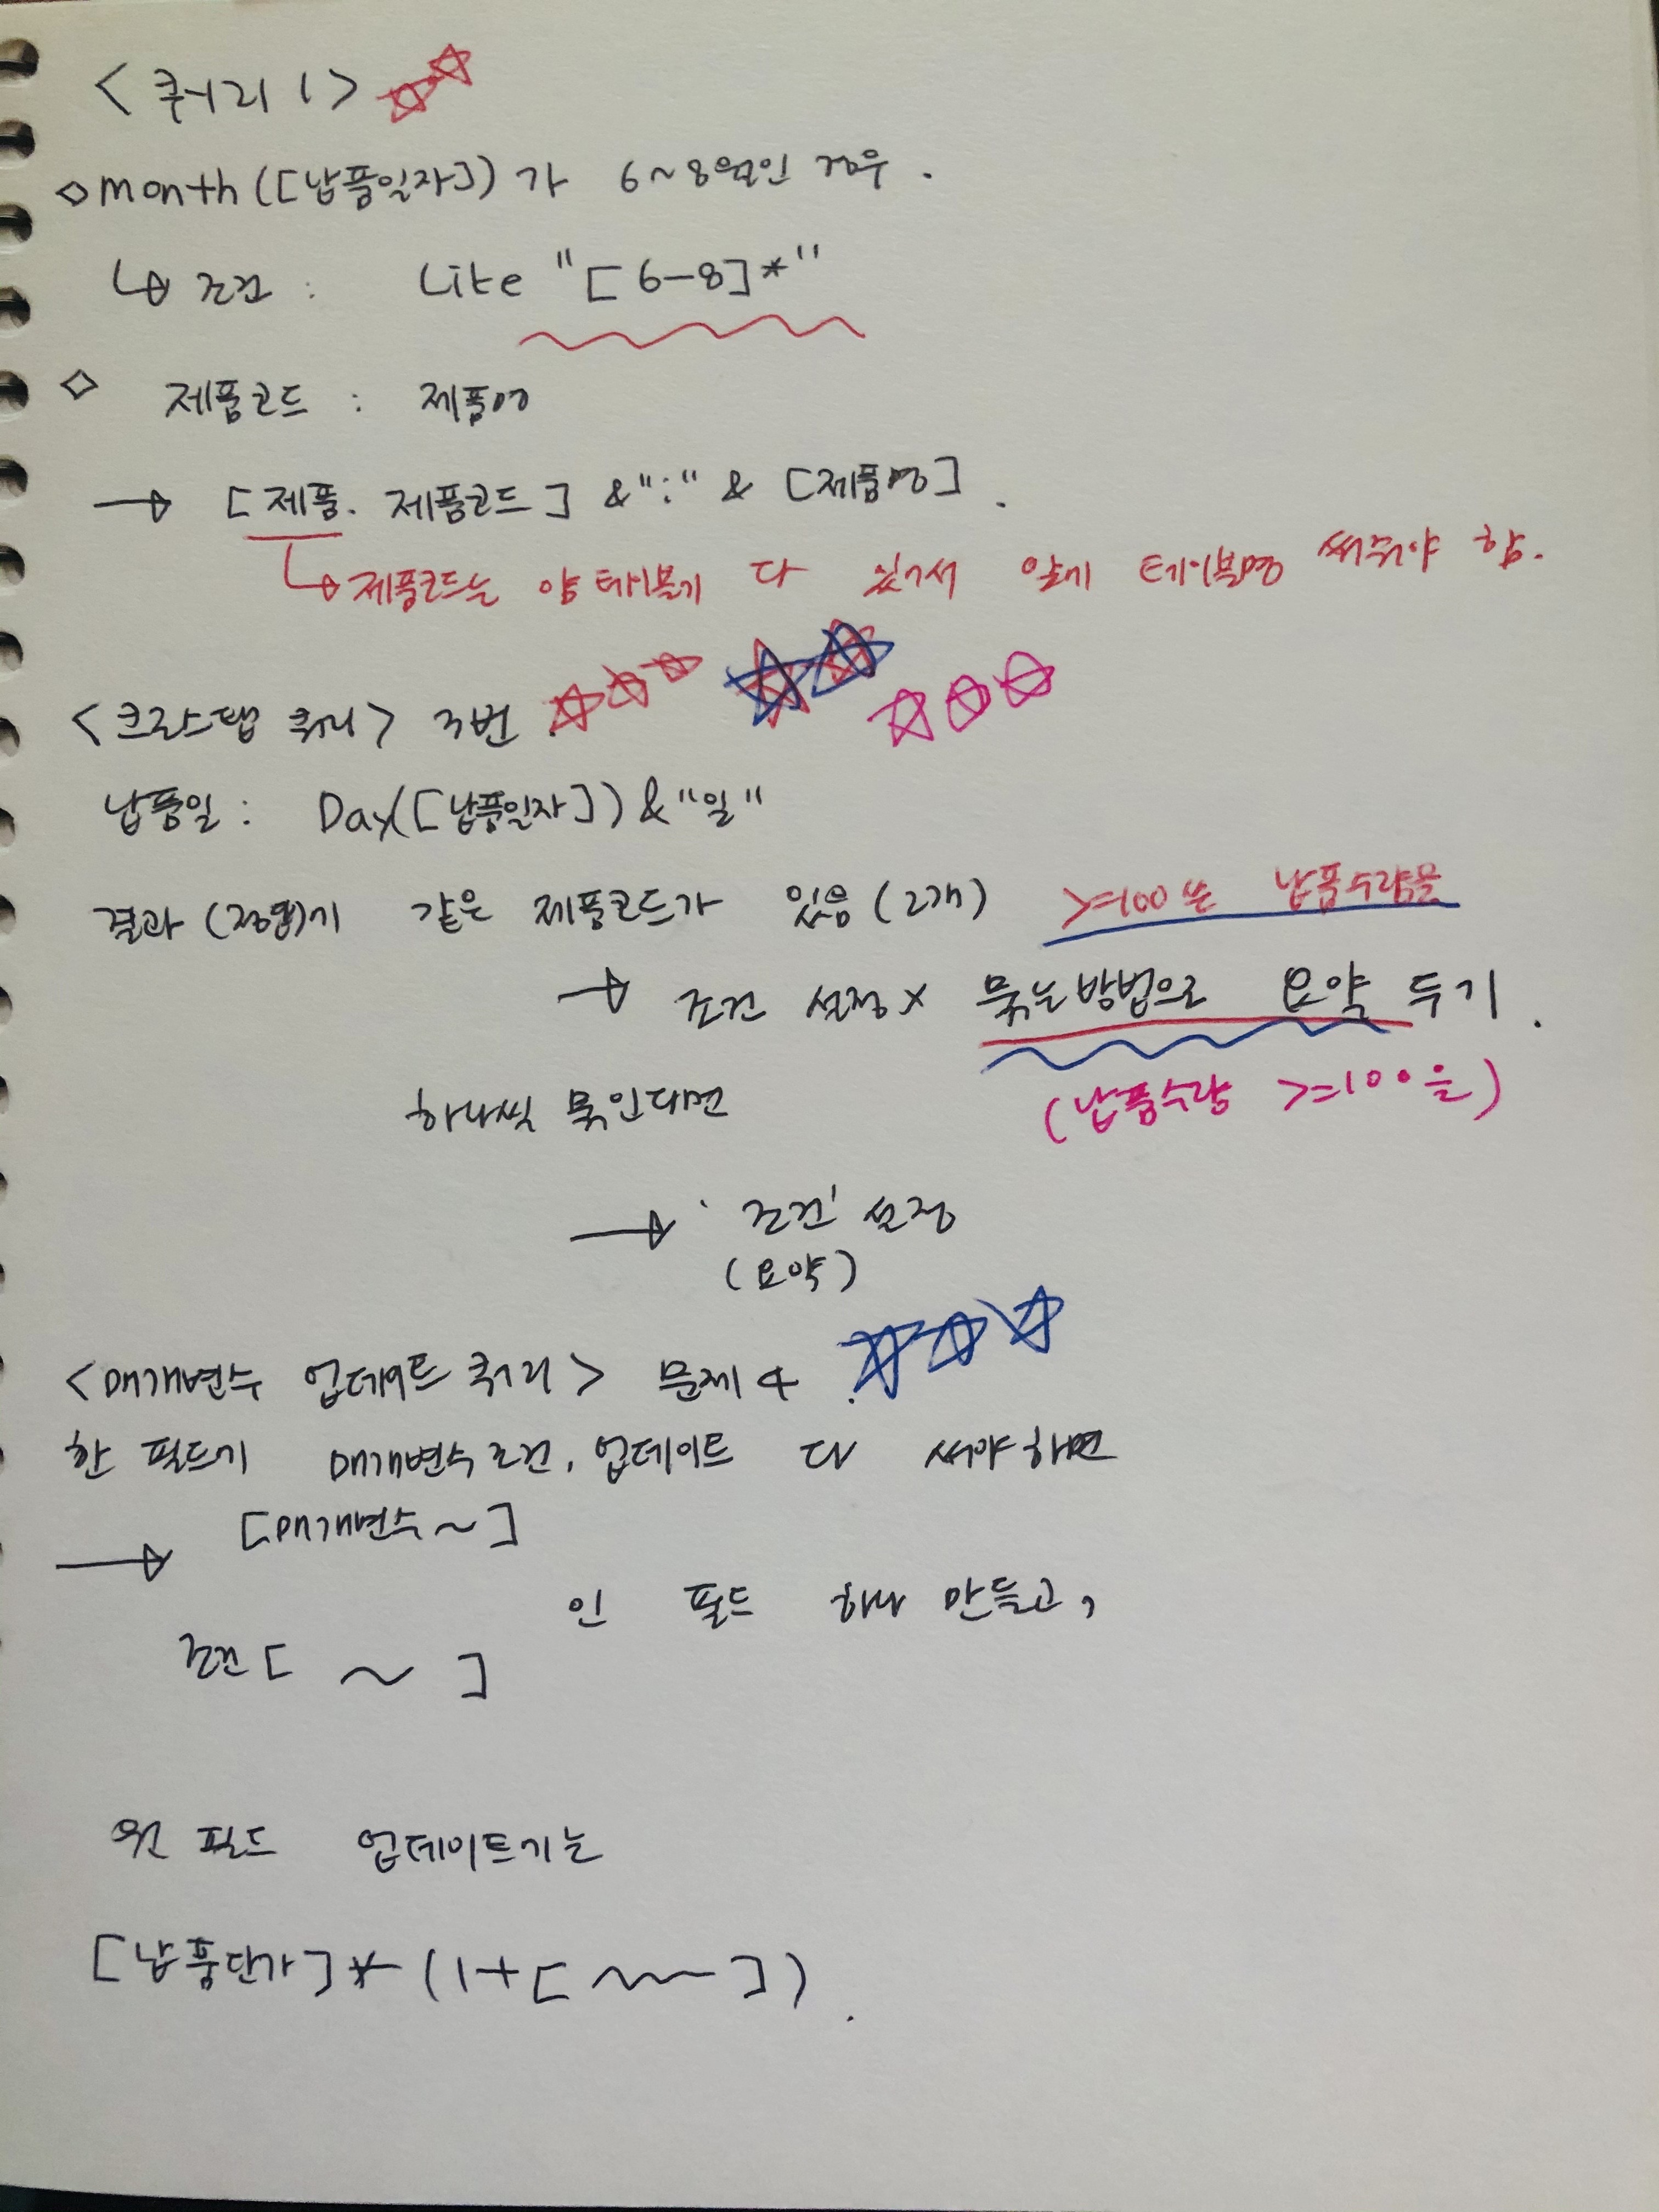 <쿼리 1>
◇ month([납품일자])가 6~8월인 경우.
↳ 조건 : Like "[6-8]*"
◇ 제품코드 : 제품명
→ [제품. 제품코드] &":"& [제품명].
↳ 제품코드는 양 테이블에 다 있어서 앞에 테이블명 써줘야 함.
<크로스탭 쿼리> 3번.
납품일 : Day([납품일자])&"일"
결과 ( )에 같은 제품코드가 있음(2개) >=100 쓴 납품수량을
→ 조건 설정 x 묶는방법으로 요약 두기.
(납품수량 >=100을)
하나씩 묶인다면
→ '조건' 설정
(요약)
<매개변수 업데이트 쿼리> 문제 4.
한 필드에 매개변수 조건, 업데이트 다 써야하면
→ [매개변수~]
인 필드 하나 만들고,
조건 [ ~ ]
원 필드 업데이트에는
[납품단가]*(1+[~~]).